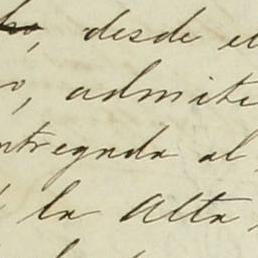 , desde el
, admite
ntregada al
la Alta